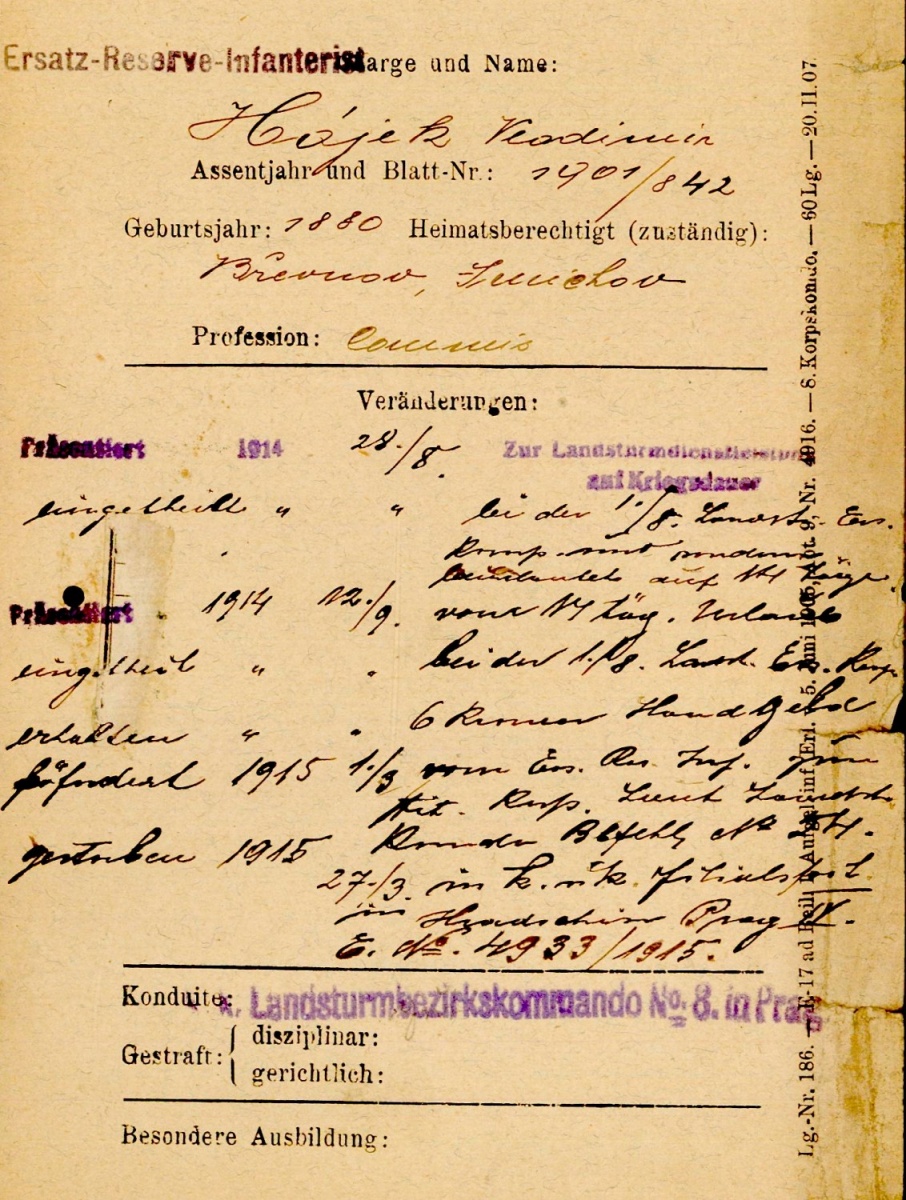 Ersatz-Reserve-Infanterist
Charge und Name:
Hájek Vladimir
Assentjahr und Blatt-Nr.: 1901/842
Geburtsjahr: 1880 Heimatsberechtigt (zuständig):
Břevnov, Smichov
Profession: Commis
Veränderungen:
Präsentiert 1914 28./8. Zur Landsturmdienstleistung
auf Kriegsdauer
eingetheilt " " bei der 1./8. Landst. Ers.
Komp. und
beurlaubt auf 14 Tage
Präsentiert 1914 12./9. vom 14 täg. Urlaub
eingetheilt " " bei der 1./8. Landst. Ers. Komp.
erhalten " " 6 Kronen Handgeld
1915 1./3 vom Ers. Res. Inf. zum
Tit. Korp. laut Landst.
Komdo Befehl No 54.
gestorben 1915
27./3. in k. u. k. Filialspit.
in Hradschin Prag IV.
E. No. 4933/1915.
Konduite:
k. Landsturmbezirkskommando No. 8. in Prag
Gestraft: { disziplinar:
gerichtlich:
Besondere Ausbildung:
Lg.-Nr. 186. — E-17 ad Beil. Erl. 5. Juni 1905, Abt. 9, Nr. 4916. — 8. Korpskomdo. — 60 Lg. — 20.II.07.